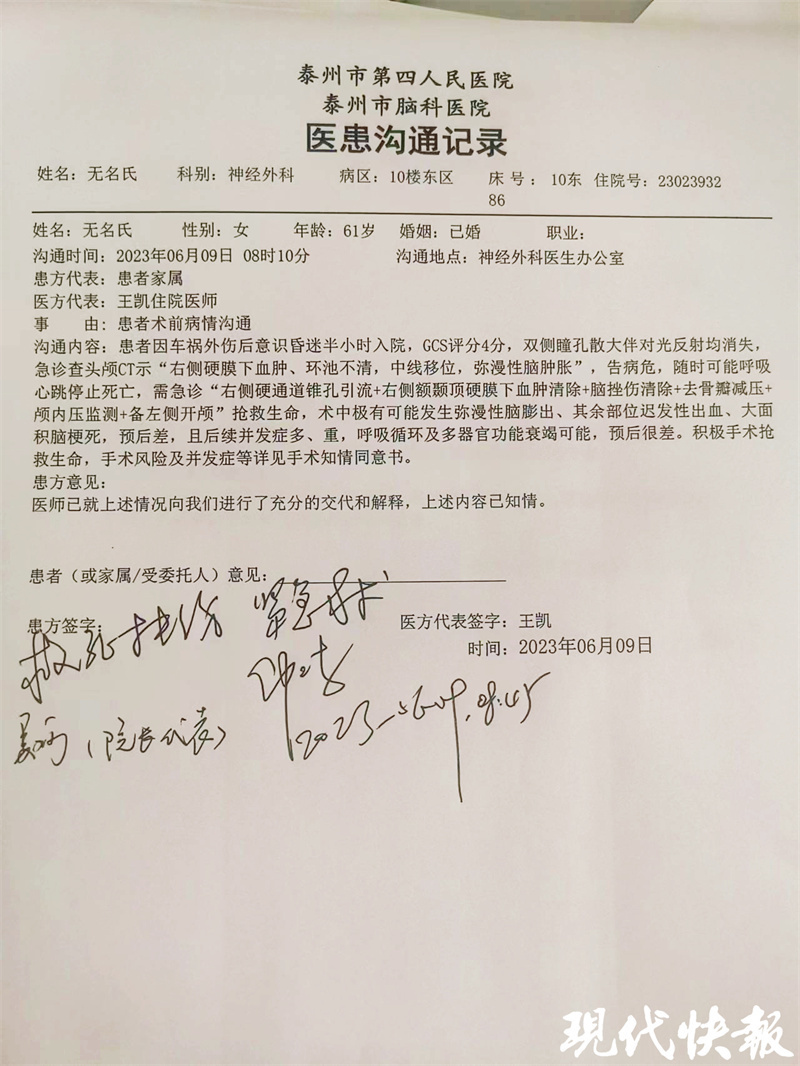 泰州市第四人民医院
泰州市脑科医院
医患沟通记录
姓名：无名氏 科别：神经外科 病区：10楼东区 床号：10东86 住院号：23023932
姓名：无名氏 性别：女 年龄：61岁 婚姻：已婚 职业：
沟通时间：2023年06月09日 08时10分 沟通地点：神经外科医生办公室
患方代表：患者家属
医方代表：王凯住院医师
事 由：患者术前病情沟通
沟通内容：患者因车祸外伤后意识昏迷半小时入院，GCS评分4分，双侧瞳孔散大伴对光反射均消失，
急诊查头颅CT示“右侧硬膜下血肿、环池不清，中线移位，弥漫性脑肿胀”，告病危，随时可能呼吸
心跳停止死亡，需急诊“右侧硬通道锥孔引流+右侧额颞顶硬膜下血肿清除+脑挫伤清除+去骨瓣减压+
颅内压监测+备左侧开颅”抢救生命，术中极有可能发生弥漫性脑膨出、其余部位迟发性出血、大面
积脑梗死，预后差，且后续并发症多、重，呼吸循环及多器官功能衰竭可能，预后很差。积极手术抢
救生命，手术风险及并发症等详见手术知情同意书。
患方意见：
医师已就上述情况向我们进行了充分的交代和解释，上述内容已知情。
患者（或家属/受委托人）意见：
患方签字： 医方代表签字：王凯
时间：2023年06月09日
紧急手术
（院长代表）
2023-06-09. 08:45
现代快报